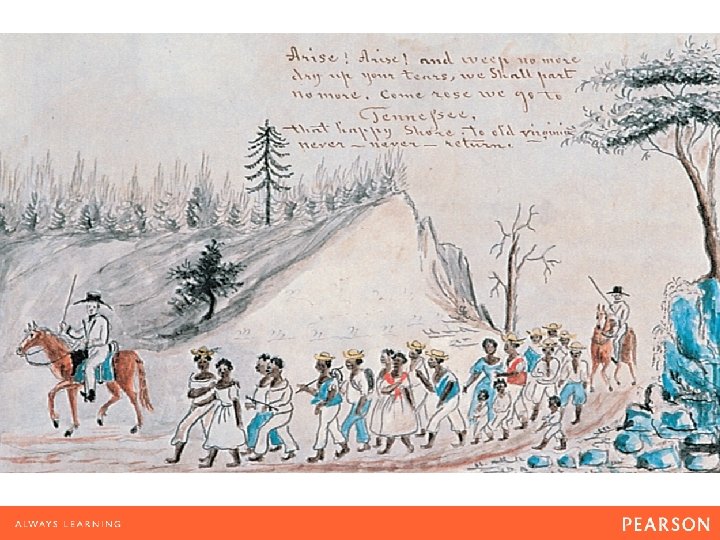 Arise! Arise! and weep no more
dry up your tears, we Shall part
no more. Come rose we go to
Tennessee,
that happy Shore, to old virginia
never – never – return.
ALWAYS LEARNING
PEARSON